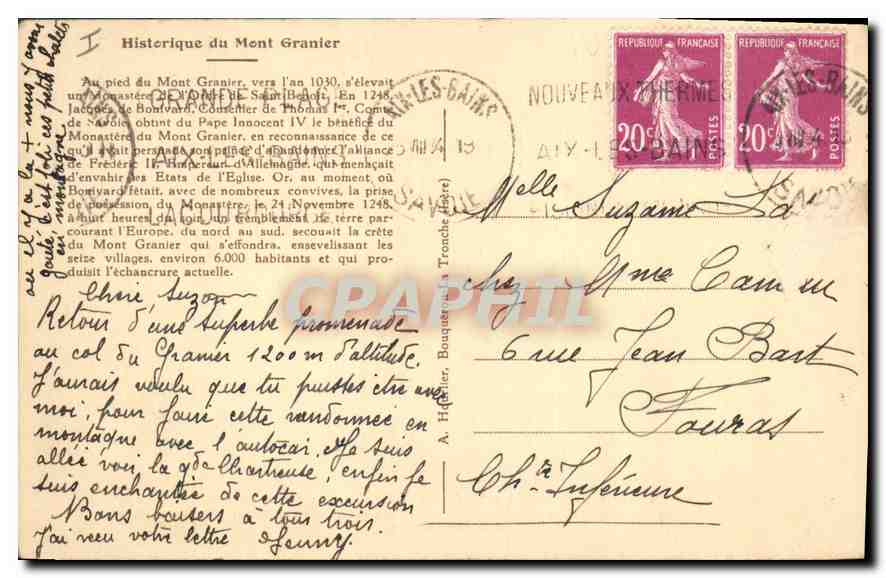 Historique du Mont Granier
Au pied du Mont Granier, vers l'an 1030, s'élevait
un Monastère de l'Ordre de Saint-Benoît. En 1248,
Jacques de Bonivard, Conseiller de Thomas Ier, Comte
de Savoie, obtint du Pape Innocent IV le bénéfice du
Monastère du Mont Granier, en reconnaissance de ce
qu'il avait
Frédéric II, Empereur d'Allemagne, qui menaçait
d'envahir les Etats de l'Eglise. Or, au moment où
Bonivard fêtait, avec de nombreux convives, la prise
de possession du Monastère, le 24 Novembre 1248,
à huit heures du soir, un tremblement de terre par-
courant l'Europe, du nord au sud, secouait la crête
du Mont Granier qui s'effondra, ensevelissant les
seize villages, environ 6.000 habitants et qui pro-
duisit l'échancrure actuelle.
Chère Suzon
Retour d'une superbe promenade
au col du Granier 1200m d'altitude.
J'aurais voulu que tu puisses être avec
moi, pour faire cette randonnée en
montagne avec l'autocar. Je suis
allée voir la gde Chartreuse, enfin je
suis enchantée de cette excursion
Bons baisers à tous trois.
J'ai reçu votre lettre Jenny.
où il y a la + nous y avons
gouté, c'est joli ces petits chalets
en montagne
I
A. Hourlier, Bouquéron La Tronche (Isère)
REPUBLIQUE FRANÇAISE
20c
POSTES
REPUBLIQUE FRANÇAISE
20c
POSTES
AIX-LES-BAINS
SAVOIE
NOUVEAUX THERMES
AIX-LES-BAINS
AIX-LES-BAINS
SAVOIE
Melle Suzanne
chez Mme Camus
6 rue Jean Bart
Fouras
Chte Inférieure
CPAPHIL